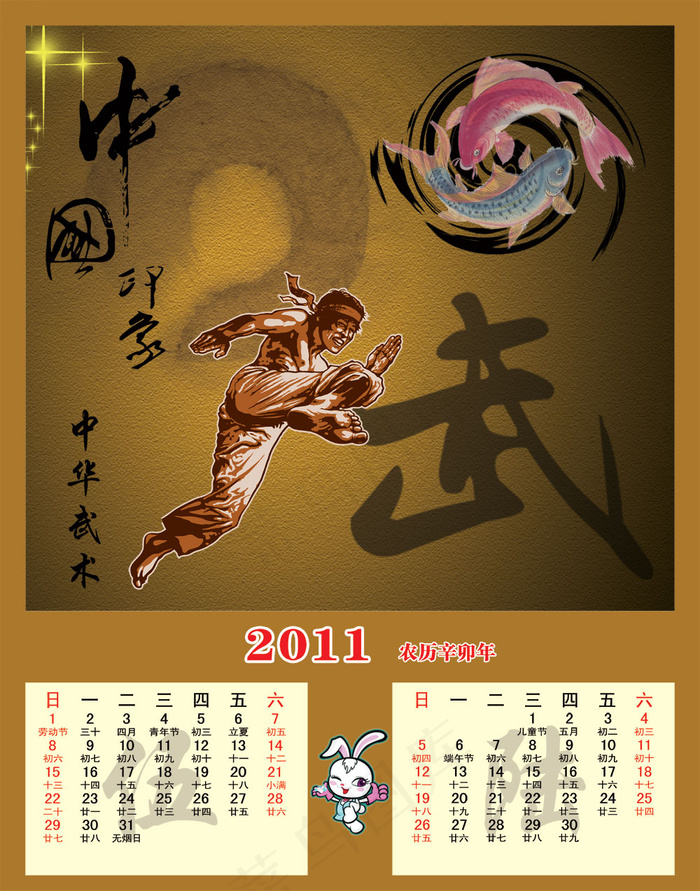 中國
印象
中华武术
武
2011 农历辛卯年
日 一 二 三 四 五 六
1 2 3 4 5 6 7
劳动节 三十 四月 青年节 初三 立夏 初五
8 9 10 11 12 13 14
初六 初七 初八 初九 初十 十一 十二
15 16 17 18 19 20 21
十三 十四 十五 十六 十七 十八 小满
22 23 24 25 26 27 28
二十 廿一 廿二 廿三 廿四 廿五 廿六
29 30 31
廿七 廿八 无烟日
伍
日 一 二 三 四 五 六
1 2 3 4
儿童节 五月 初二 初三
5 6 7 8 9 10 11
初四 端午节 初六 初七 初八 初九 初十
12 13 14 15 16 17 18
十一 十二 十三 十四 十五 十六 十七
19 20 21 22 23 24 25
十八 十九 二十 廿一 廿二 廿三 廿四
26 27 28 29 30
廿五 廿六 廿七 廿八 廿九
陆